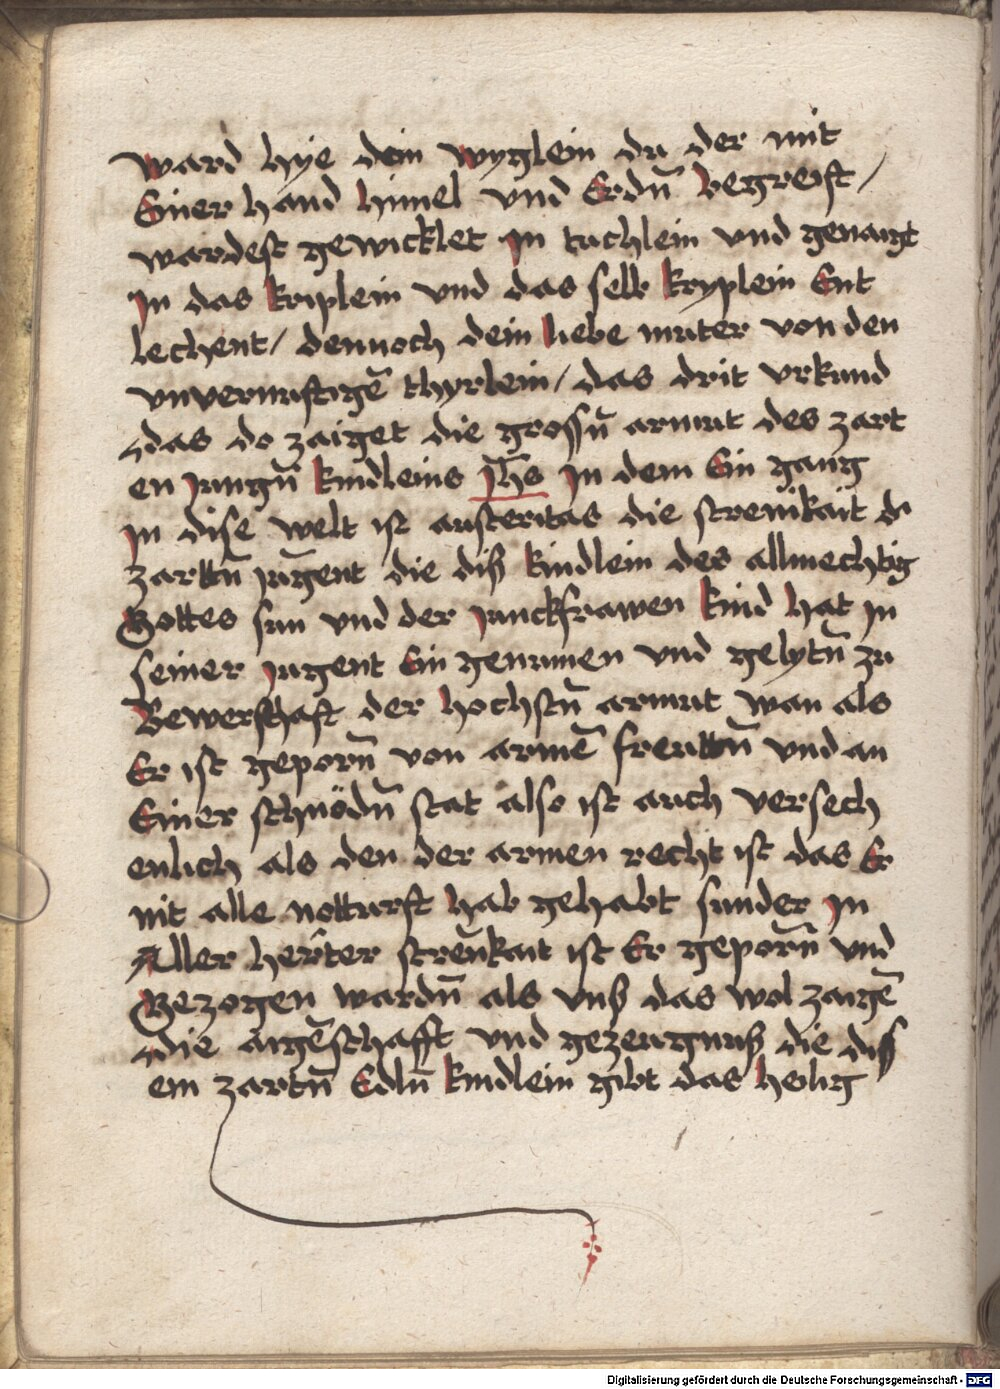 ward hye dein wyglein du der mit
Einer hand himel vnd Erdn̄ begreift /
wardest gewicklet Jn tuchlein vnd genaigt
Jn das kriplein vnd das selb kryplein Ent
lechent / dennoch dein liebe muter von den
vnvernuftigē thyrlein / das drit vrkund
das do zaiget die grossn̄ armut des zart
en jungn̄ kindleins Jhs Jn dem Ein gang
Jn dise welt ist austeritas die strenikait do
zarttn̄ jugent die diß kindlein des allmechtig
Gottes sun vnd der junckfrawen kind hat Jn
seiner jugent Ein genumen vnd gelytn̄ zu
Bewerschaft der hochstn̄ armut wan als
Er ist geporn̄ von armē freuttn̄ vnd an
Einer schnödn̄ stat also ist auch versech
enlich als den der armen recht ist das Er
nit alle notturft hab gehabt sunder Jn
Aller herter strenkait ist Er geporn̄ vnd
Gezogen wardn̄ als vnß das wol zaigē
die aigēschafft vnd gezeugnuß die diß
ein zartn̄ Edln̄ kindlein gibt das heilig
Digitalisierung gefördert durch die Deutsche Forschungsgemeinschaft - DFG